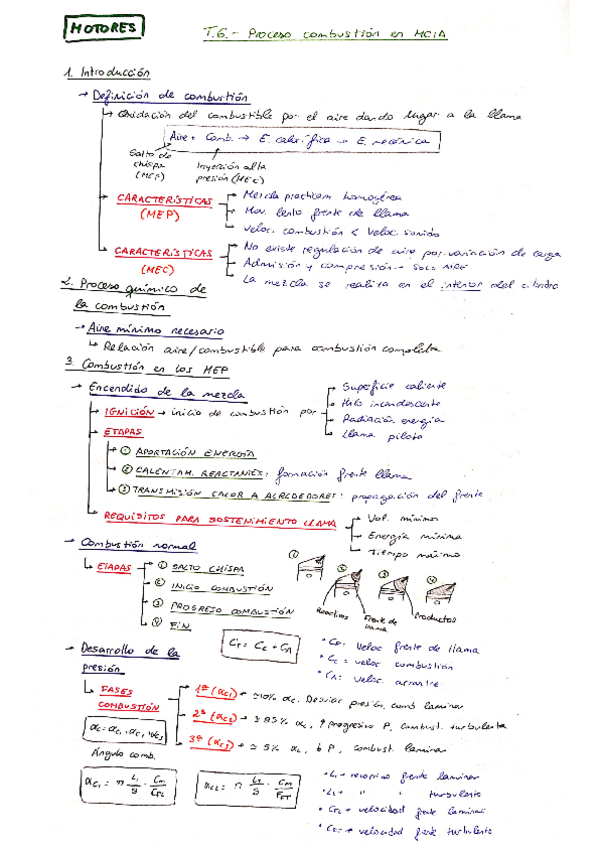 MOTORES
T.6.- Proceso combustión en MCIA
1. Introducción
→ Definición de combustión
↳ Oxidación del combustible por el aire dando lugar a la llama
Aire + Comb. → E. calorífica → E. mecánica
Salto de chispa (MEP)
Inyección alta presión (MEC)
CARACTERÍSTICAS (MEP)
Mezcla practicam. homogénea
Mov. lento frente de llama
Veloc. combustión < Veloc. sonido
CARACTERÍSTICAS (MEC)
No existe regulación de aire por variación de carga
Admisión y compresión → solo
La mezcla se realiza en el interior del cilindro
2. Proceso químico de
la combustión
→ Aire mínimo necesario
↳ Relación aire/combustible para combustión completa
3. Combustión en los MEP
→ Encendido de la mezcla
IGNICIÓN → inicio de combustión por
Superficie caliente
Hilo incandescente
Radiación energía
Llama piloto
ETAPAS
① APORTACIÓN ENERGÍA
② CALENTAM. REACTANTES: formación frente llama
③ TRANSMISIÓN CALOR A ALREDEDORES: propagación del frente
REQUISITOS PARA SOSTENIMIENTO LLAMA
Vol. mínimo
Energía mínima
Tiempo máximo
→ Combustión normal
ETAPAS
① SALTO CHISPA
② INICIO COMBUSTIÓN
③ PROGRESO COMBUSTIÓN
④ FIN
① ② ③ ④
Reactivos
Frente de llama
Productos
CF = CC + CA
* CF = veloc frente de llama
* CC = veloc combustión
* CA = veloc. arrastre
→ Desarrollo de la
presión
FASES COMBUSTIÓN
1ª (αc1) → ≈10% αc. Desviar presión. comb laminar
2ª (αc2) → ≥85% αc, ↑ progresivo P, combust. turbulenta
3ª (αc3) → ≈ 5% αc, ↓ P, combust. laminar
αc = αc1 + αc2 + αc3
Ángulo comb.
αc1 = n L1/g · Cm/CFL
αc2 = n LT/g · Cm/CFT
* L1 → recorrido frente laminar
* LT → " " turbulento
* CFL → velocidad frente laminar
* CFT → velocidad frente turbulento